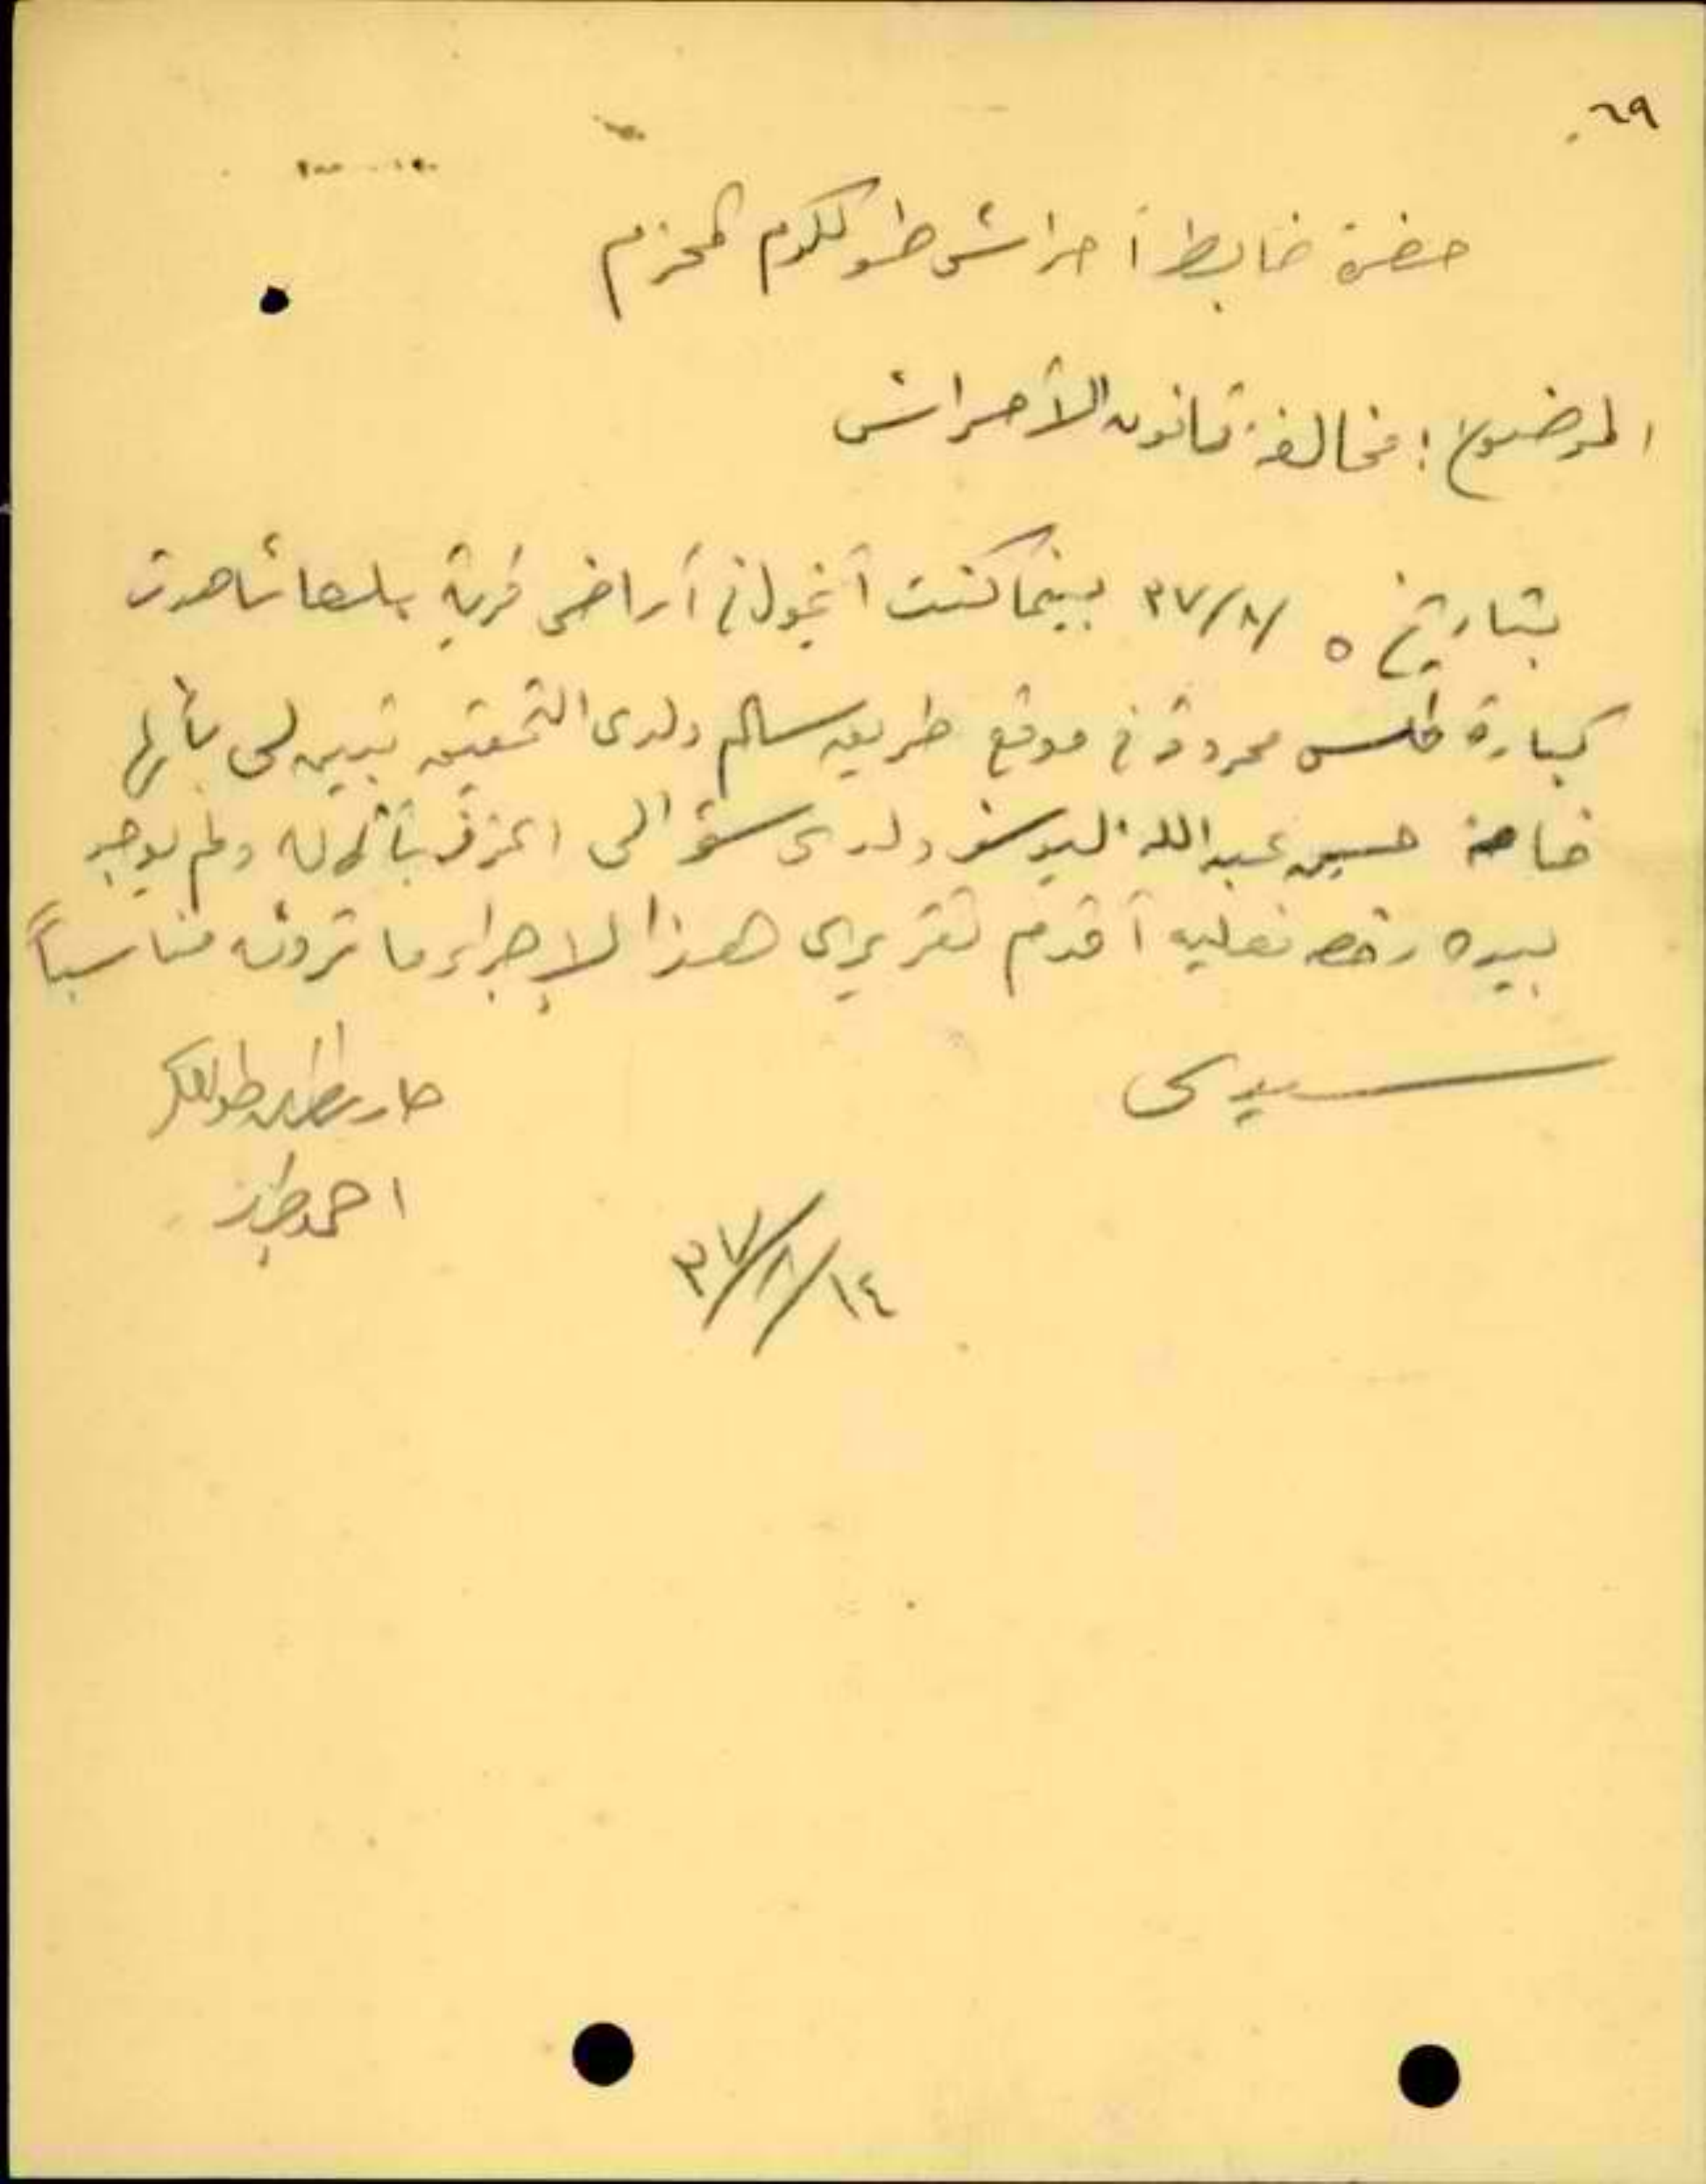 ٦٩
حضرة ضابط أحراش طولكرم المحترم
الموضوع : مخالفة قانون الأحراش
بتاريخ ٥ /٨/ ٣٧ بينما كنت أتجول في أراضي قرية بلعا شاهدت
كبارة كلس محروقة في موقع طريق سالم ولدى التحقيق تبين لي بأنها
خاصة حسين عبدالله اليوسف ولدى سؤالي اعترف بأنها له ولم يوجد
بيده رخصه فعليه أقدم تقريري هذا لإجراء ما ترونه مناسباً
سيدي
احمد
١٤/٨/٣٧